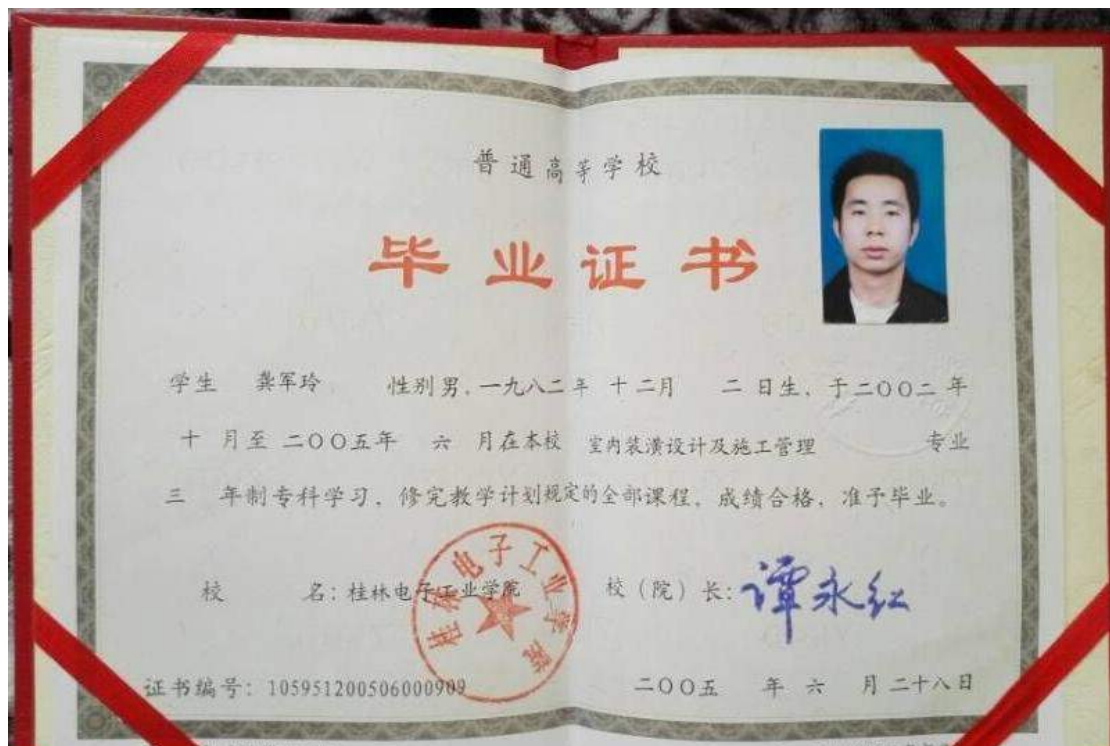 普通高等学校
毕业证书
学生 龚军玲 性别男，一九八二年 十二月 二 日生，于二〇〇二 年
十 月至 二〇〇五年 六 月在本校 室内装潢设计及施工管理 专业
三 年制专科学习，修完教学计划规定的全部课程，成绩合格，准予毕业。
校 名：桂林电子工业学院 校（院）长：谭永红
桂林电子工业学院
证书编号：105951200506000909 二〇〇五 年 六 月二十八日